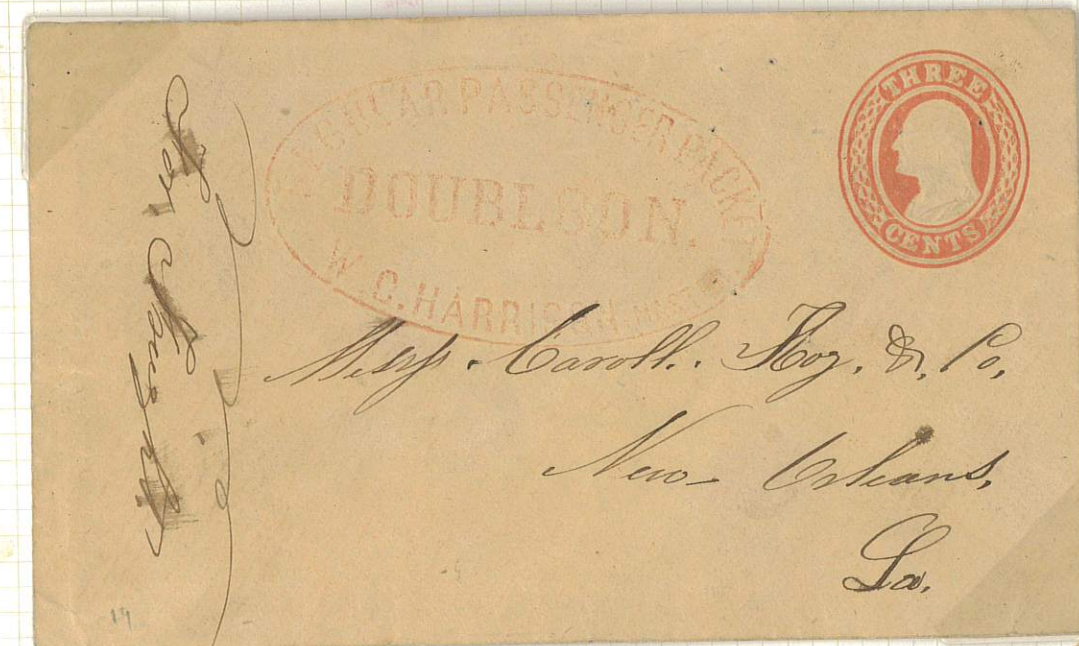 REGULAR PASSENGER PACKET
DOUBLOON.
W. C. HARRISON, MAST
THREE
CENTS
Messrs. Caroll. Hoy. & Co,
New Orleans,
La.
19